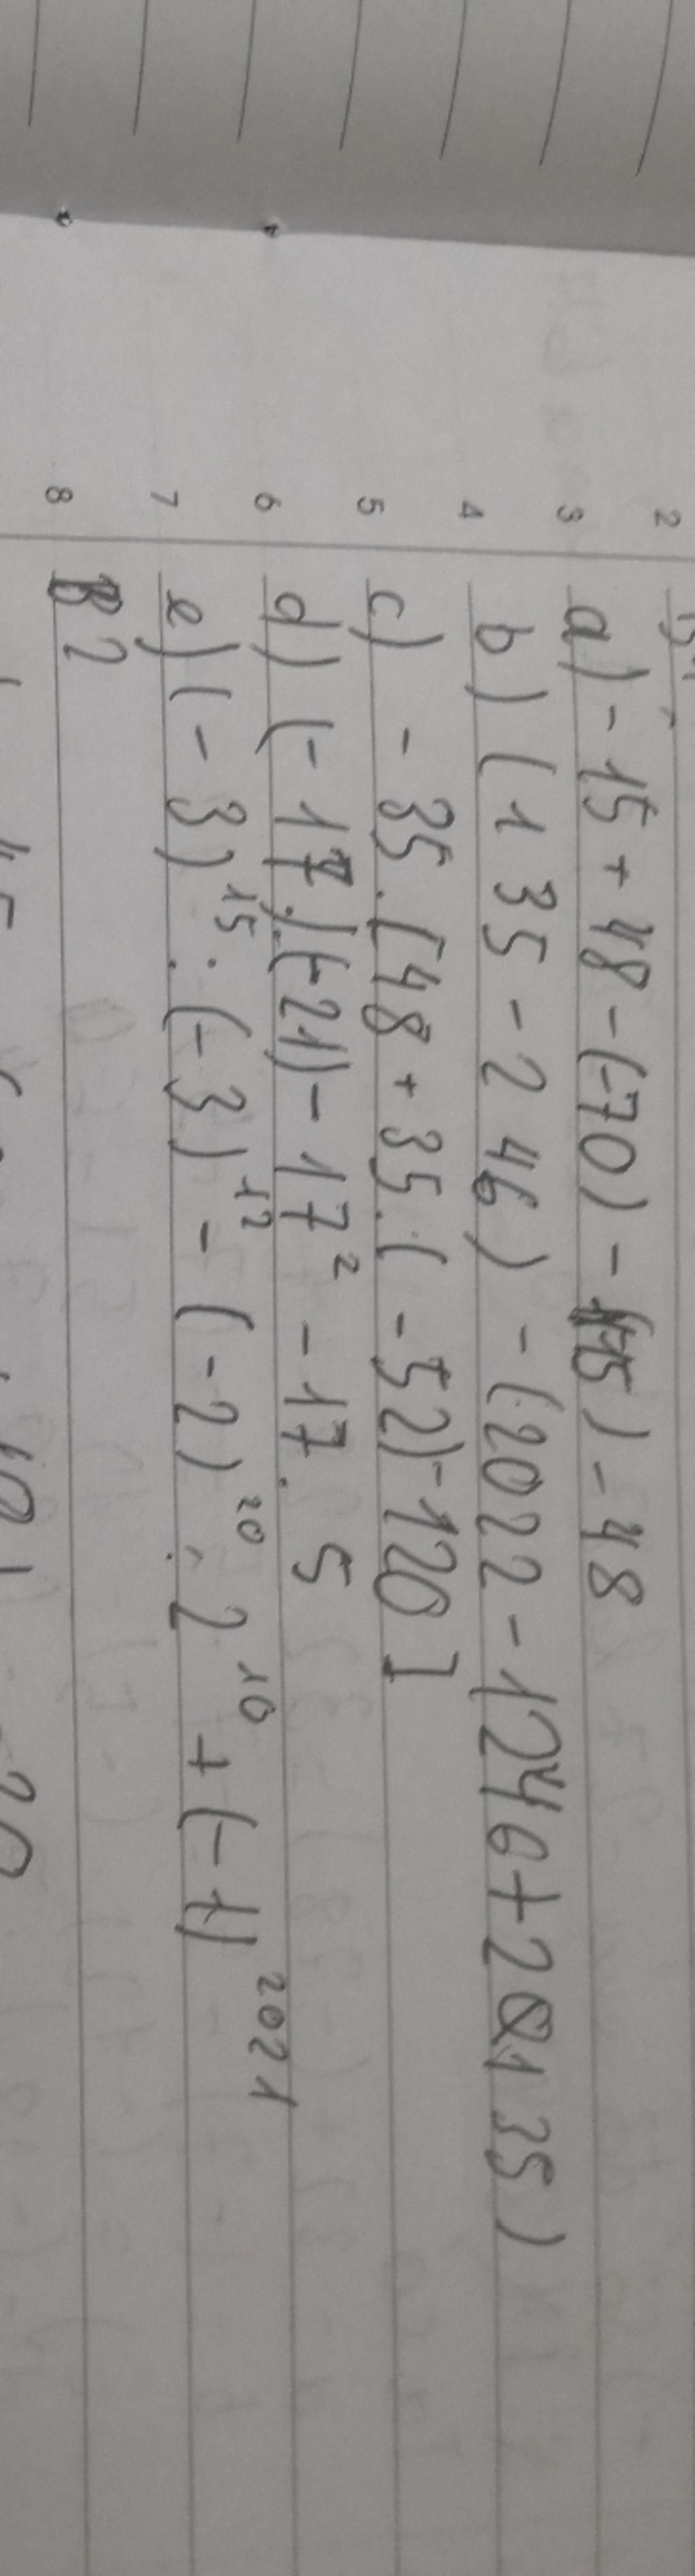 2
3 a) - 15 + 48 - (-70) - (-15) - 48
4 b) (135 - 246) - (2022 - 1246 + 20135)
5 c) - 35 . [48 + 35 . ( - 52) - 120]
6 d) (- 17) . (-21) - 17² - 17 . 5
7 e) (- 3)¹⁵ : (- 3)¹² - (- 2)²⁰ : 2¹⁰ + (- 1)²⁰²¹
8 B2